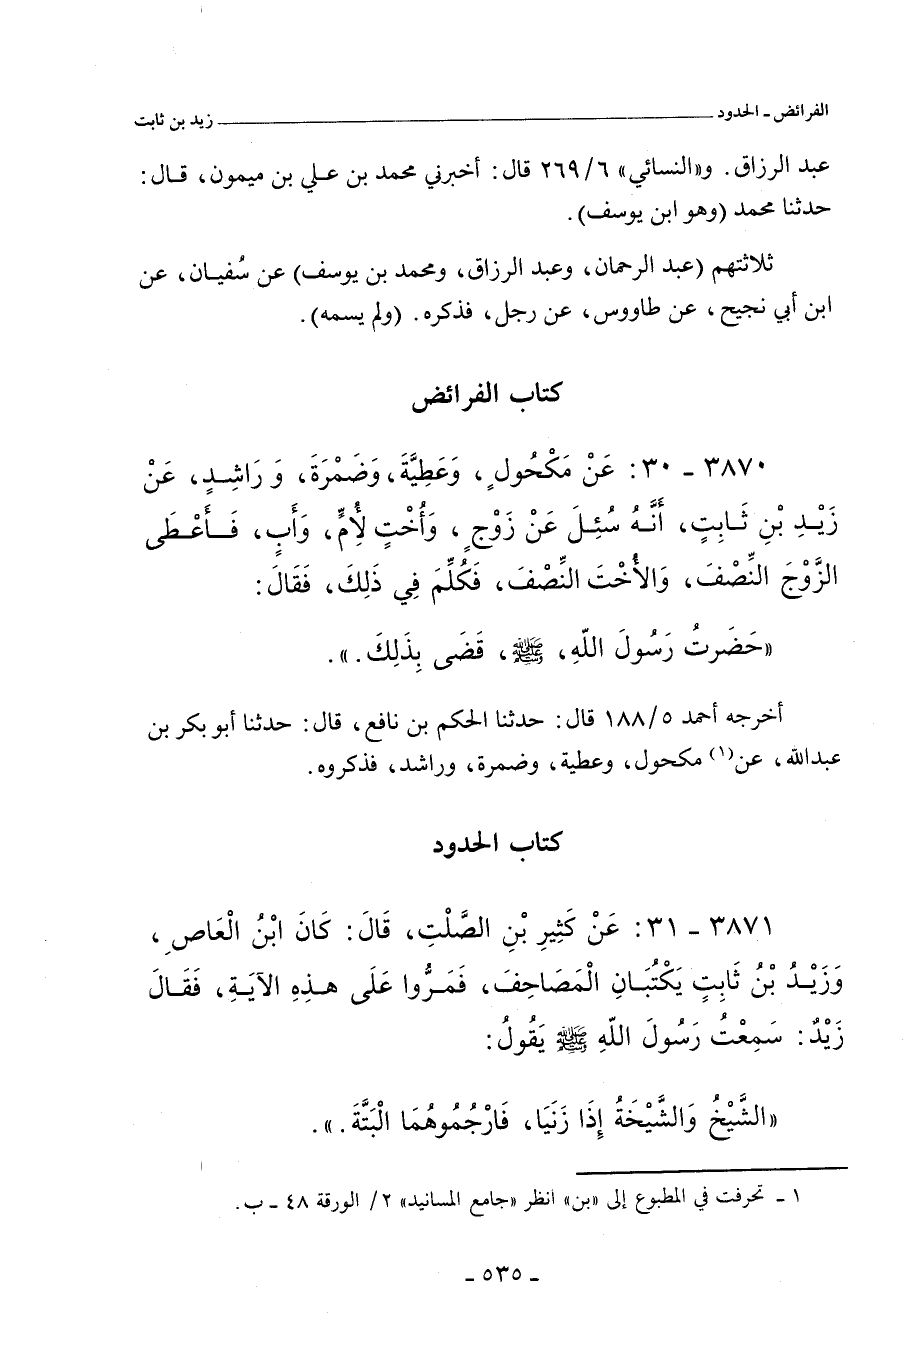 الفرائض - الحدود زيد بن ثابت
عبد الرزاق. و«النسائي» ٢٦٩/٦ قال: أخبرني محمد بن علي بن ميمون، قال:
حدثنا محمد (وهو ابن يوسف).
ثلاثتهم (عبد الرحمان، وعبد الرزاق، ومحمد بن يوسف) عن سُفيان، عن
ابن أبي نجيح، عن طاووس، عن رجل، فذكره. (ولم يسمه).
كتاب الفرائض
٣٨٧٠ - ٣٠: عَنْ مَكْحُولٍ، وَعَطِيَّةَ، وَضَمْرَةَ، وَرَاشِدٍ، عَنْ
زَيْدِ بْنِ ثَابِتٍ، أَنَّهُ سُئِلَ عَنْ زَوْجٍ، وَأُخْتٍ لِأُمٍّ، وَأَبٍ، فَأَعْطَى
الزَّوْجَ النِّصْفَ، وَالأُخْتَ النِّصْفَ، فَكُلِّمَ فِي ذَلِكَ، فَقَالَ:
«حَضَرتُ رَسُولَ اللّهِ، ﷺ، قَضَى بِذَلِكَ.».
أخرجه أحمد ١٨٨/٥ قال: حدثنا الحكم بن نافع، قال: حدثنا أبو بكر بن
عبدالله، عن(١) مكحول، وعطية، وضمرة، وراشد، فذكروه.
كتاب الحدود
٣٨٧١ - ٣١: عَنْ كَثِيرِ بْنِ الصَّلْتِ، قَالَ: كَانَ ابْنُ الْعَاصِ،
وَزَيْدُ بْنُ ثَابِتٍ يَكْتُبَانِ الْمَصَاحِفَ، فَمَرُّوا عَلَى هذِهِ الآيَةِ، فَقَالَ
زَيْدٌ: سَمِعْتُ رَسُولَ اللّهِ ﷺ يَقُولُ:
«الشَّيْخُ وَالشَّيْخَةُ إِذَا زَنَيَا، فَارْجُمُوهُمَا الْبَتَّةَ.».
١ - تحرفت في المطبوع إلى «بن» انظر «جامع المسانيد» ٢/ الورقة ٤٨ - ب.
- ٥٣٥ -